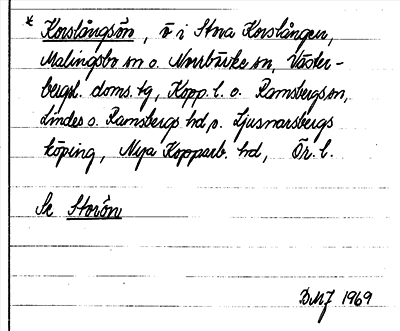 * Korslångsön, ö i Stora Korslången,
Malingsbo sn o. Norrbärke sn, Väster-
bergsl. doms.tg, Kopp. l. o. Ramsbergs sn,
Lindes o. Ramsbergs hd, o. Ljusnarsbergs
köping, Nya Kopparb. hd, Ör. l.
Se Storön
DMJ 1969